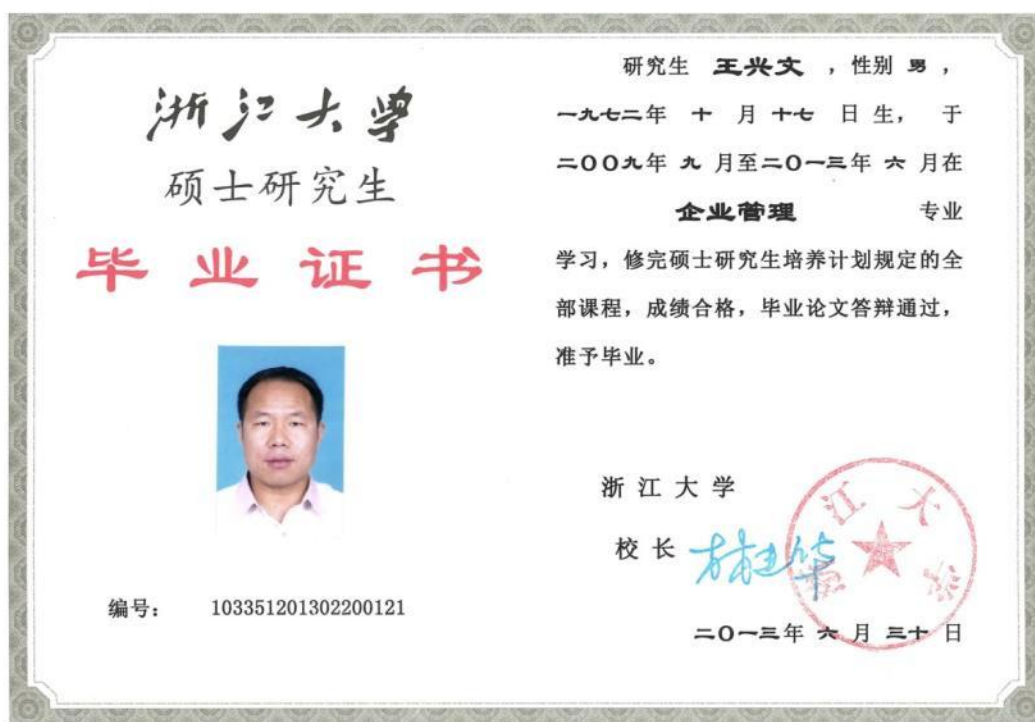 浙江大学
硕士研究生
毕业证书
编号： 103351201302200121
研究生 王兴文 ，性别 男 ，
一九七二年 十 月 十七 日生， 于
二〇〇九年 九 月至二〇一三年 六 月在
企业管理 专业
学习，修完硕士研究生培养计划规定的全
部课程，成绩合格，毕业论文答辩通过，
准予毕业。
浙江大学
校长 林建华
浙江大学
二〇一三年 六 月 三十 日